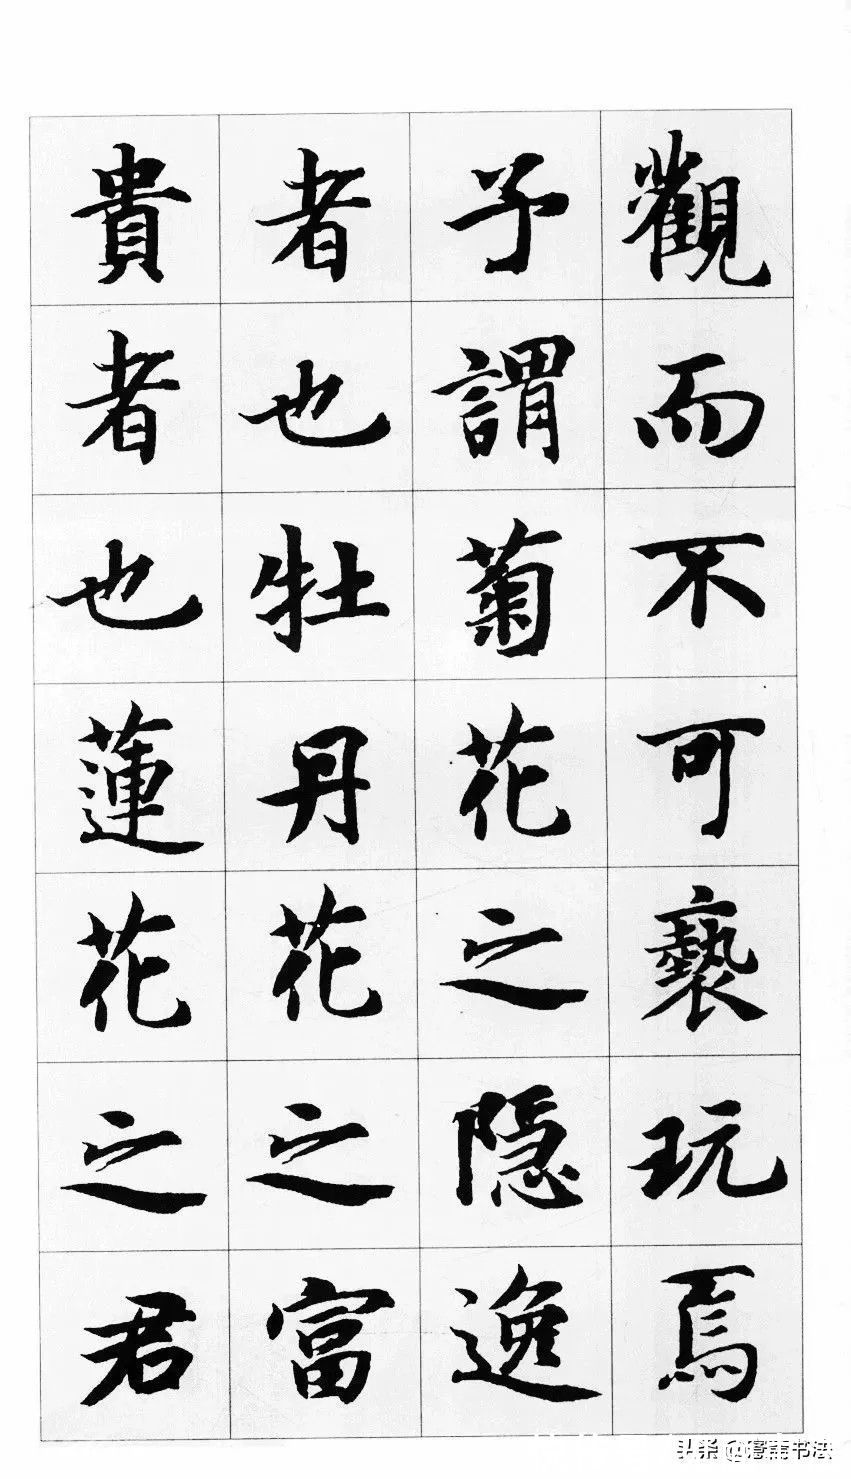 觀而不可褻玩焉
予謂菊花之隐逸
者也牡丹花之富
貴者也蓮花之君
头条 @书法